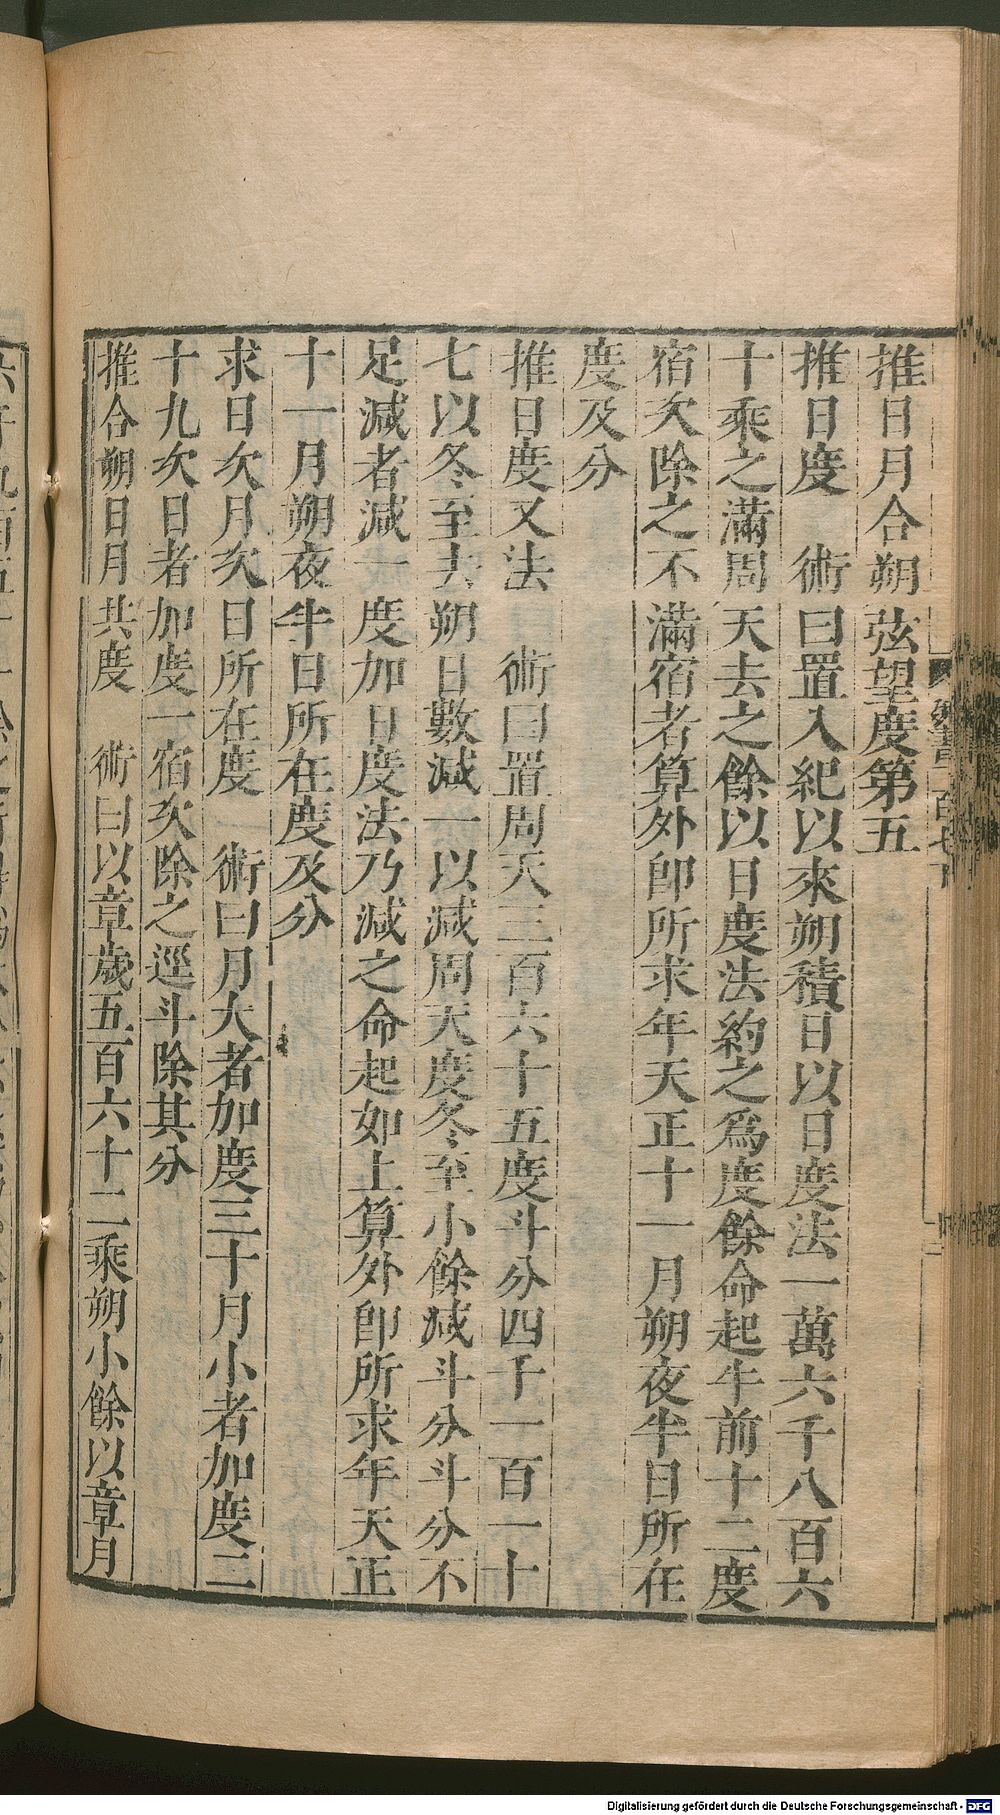 推日月合朔弦望度第五
推日度　術曰置入紀以來朔積日以日度法一萬六千八百六
十乘之滿周天去之餘以日度法約之爲度餘命起牛前十二度
宿次除之不滿宿者算外卽所求年天正十一月朔夜半日所在
度及分
推日度又法　術曰置周天三百六十五度斗分四千一百一十
七以冬至去朔日數減一以減周天度冬至小餘減斗分斗分不
足減者減一度加日度法乃減之命起如上算外卽所求年天正
十一月朔夜半日所在度及分
求日次月次日所在度　術曰月大者加度三十月小者加度二
十九次日者加度一宿次除之逕斗除其分
推合朔日月共度　術曰以章歲五百六十二乘朔小餘以章月
Digitalisierung gefördert durch die Deutsche Forschungsgemeinschaft - DFG